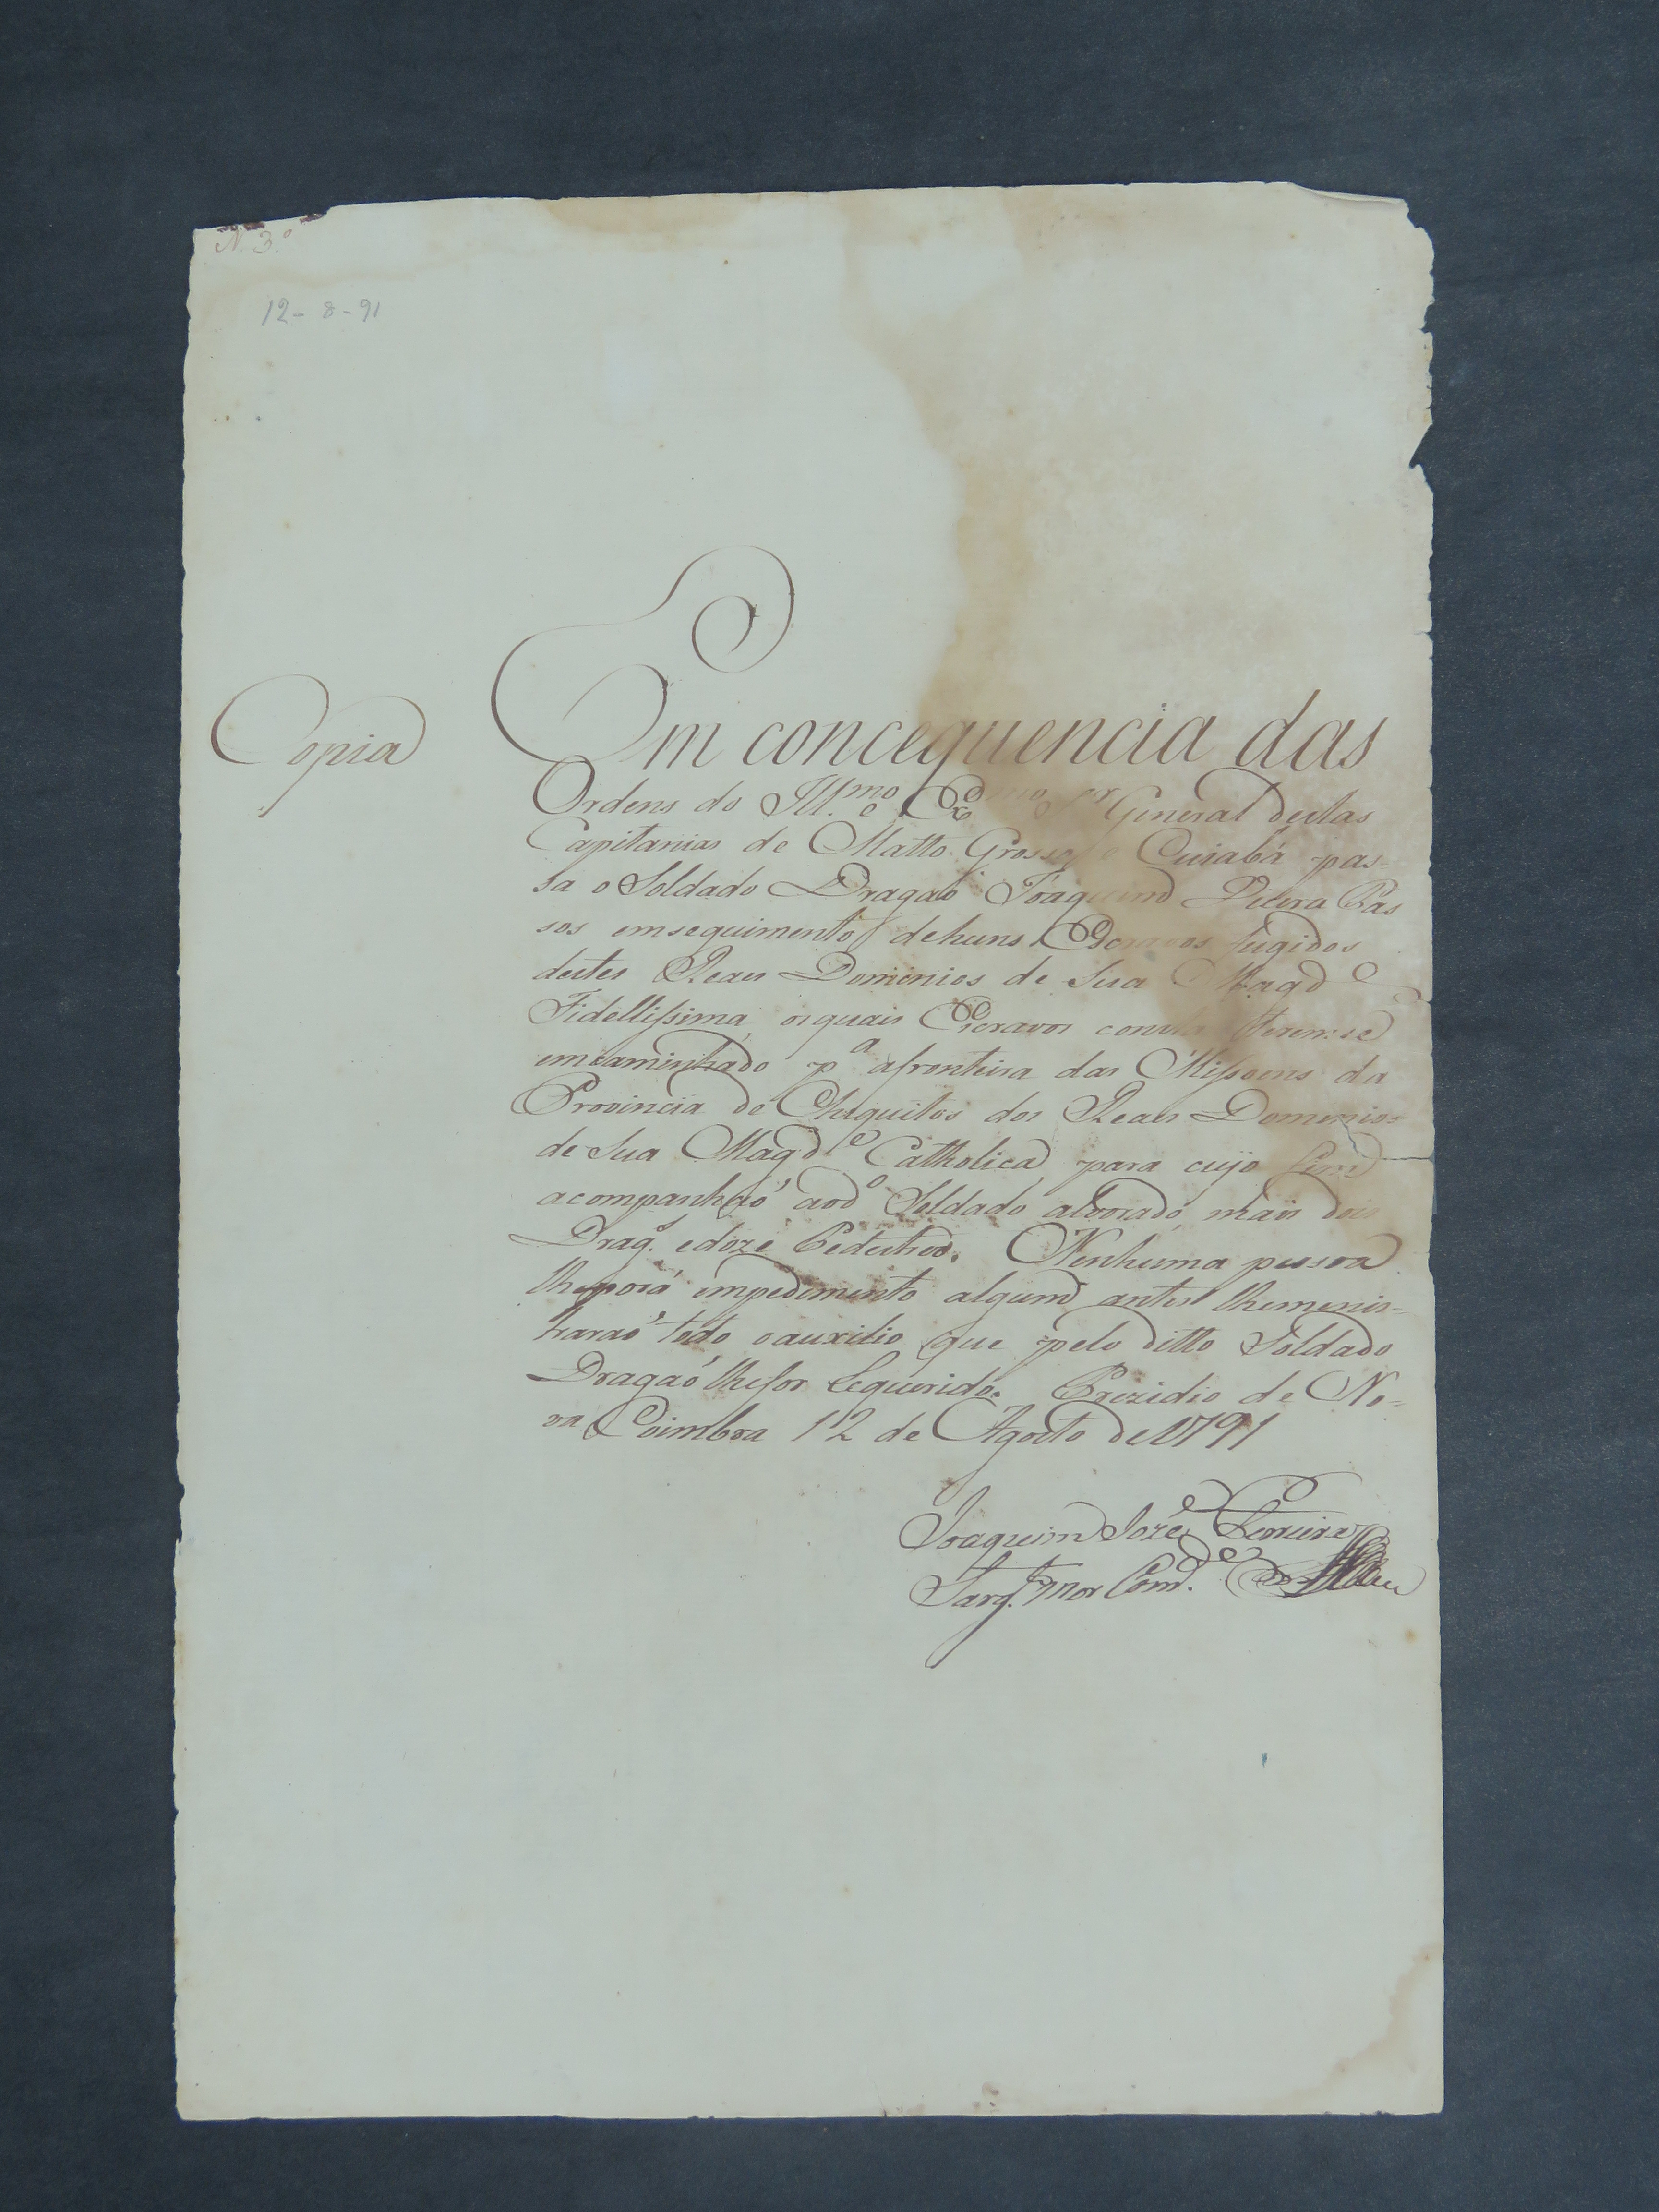 N 3.º
12-8-91
Copia
Em concequencia das
Ordens do Ill.mo e Exmo Snr General destas
Capitanias de Matto Grosso e Cuiabá pas-
sa o Soldado Dragaõ Joaquim Vieira Pas
sos emseguimento dehuns Escravos fugidos
destes Reaes Dominios de Sua Magde
Fidellissima, osquais Escravos consta terem-se
emcaminhado pa afronteira das Missoens da
Provincia de Chiquitos dos Reaes Dominios
de Sua Magde Catholica para cujo fim
acompanhaõ aodo Soldado alvorado, mais dois
Drags. edoze Pedestres. Nenhuma pessoa
lheporá impedimento algum antes lhemenis-
traraõ todo oauxilio que pelo ditto Soldado
Dragaõ lhefor Requerido. Prezidio de No-
va Coimbra 12 de Agosto de 1791
Joaquim Joze Ferreira
Sargto. Mor Comde.